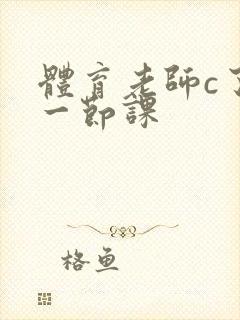 體育老師c了
一節課
格魚